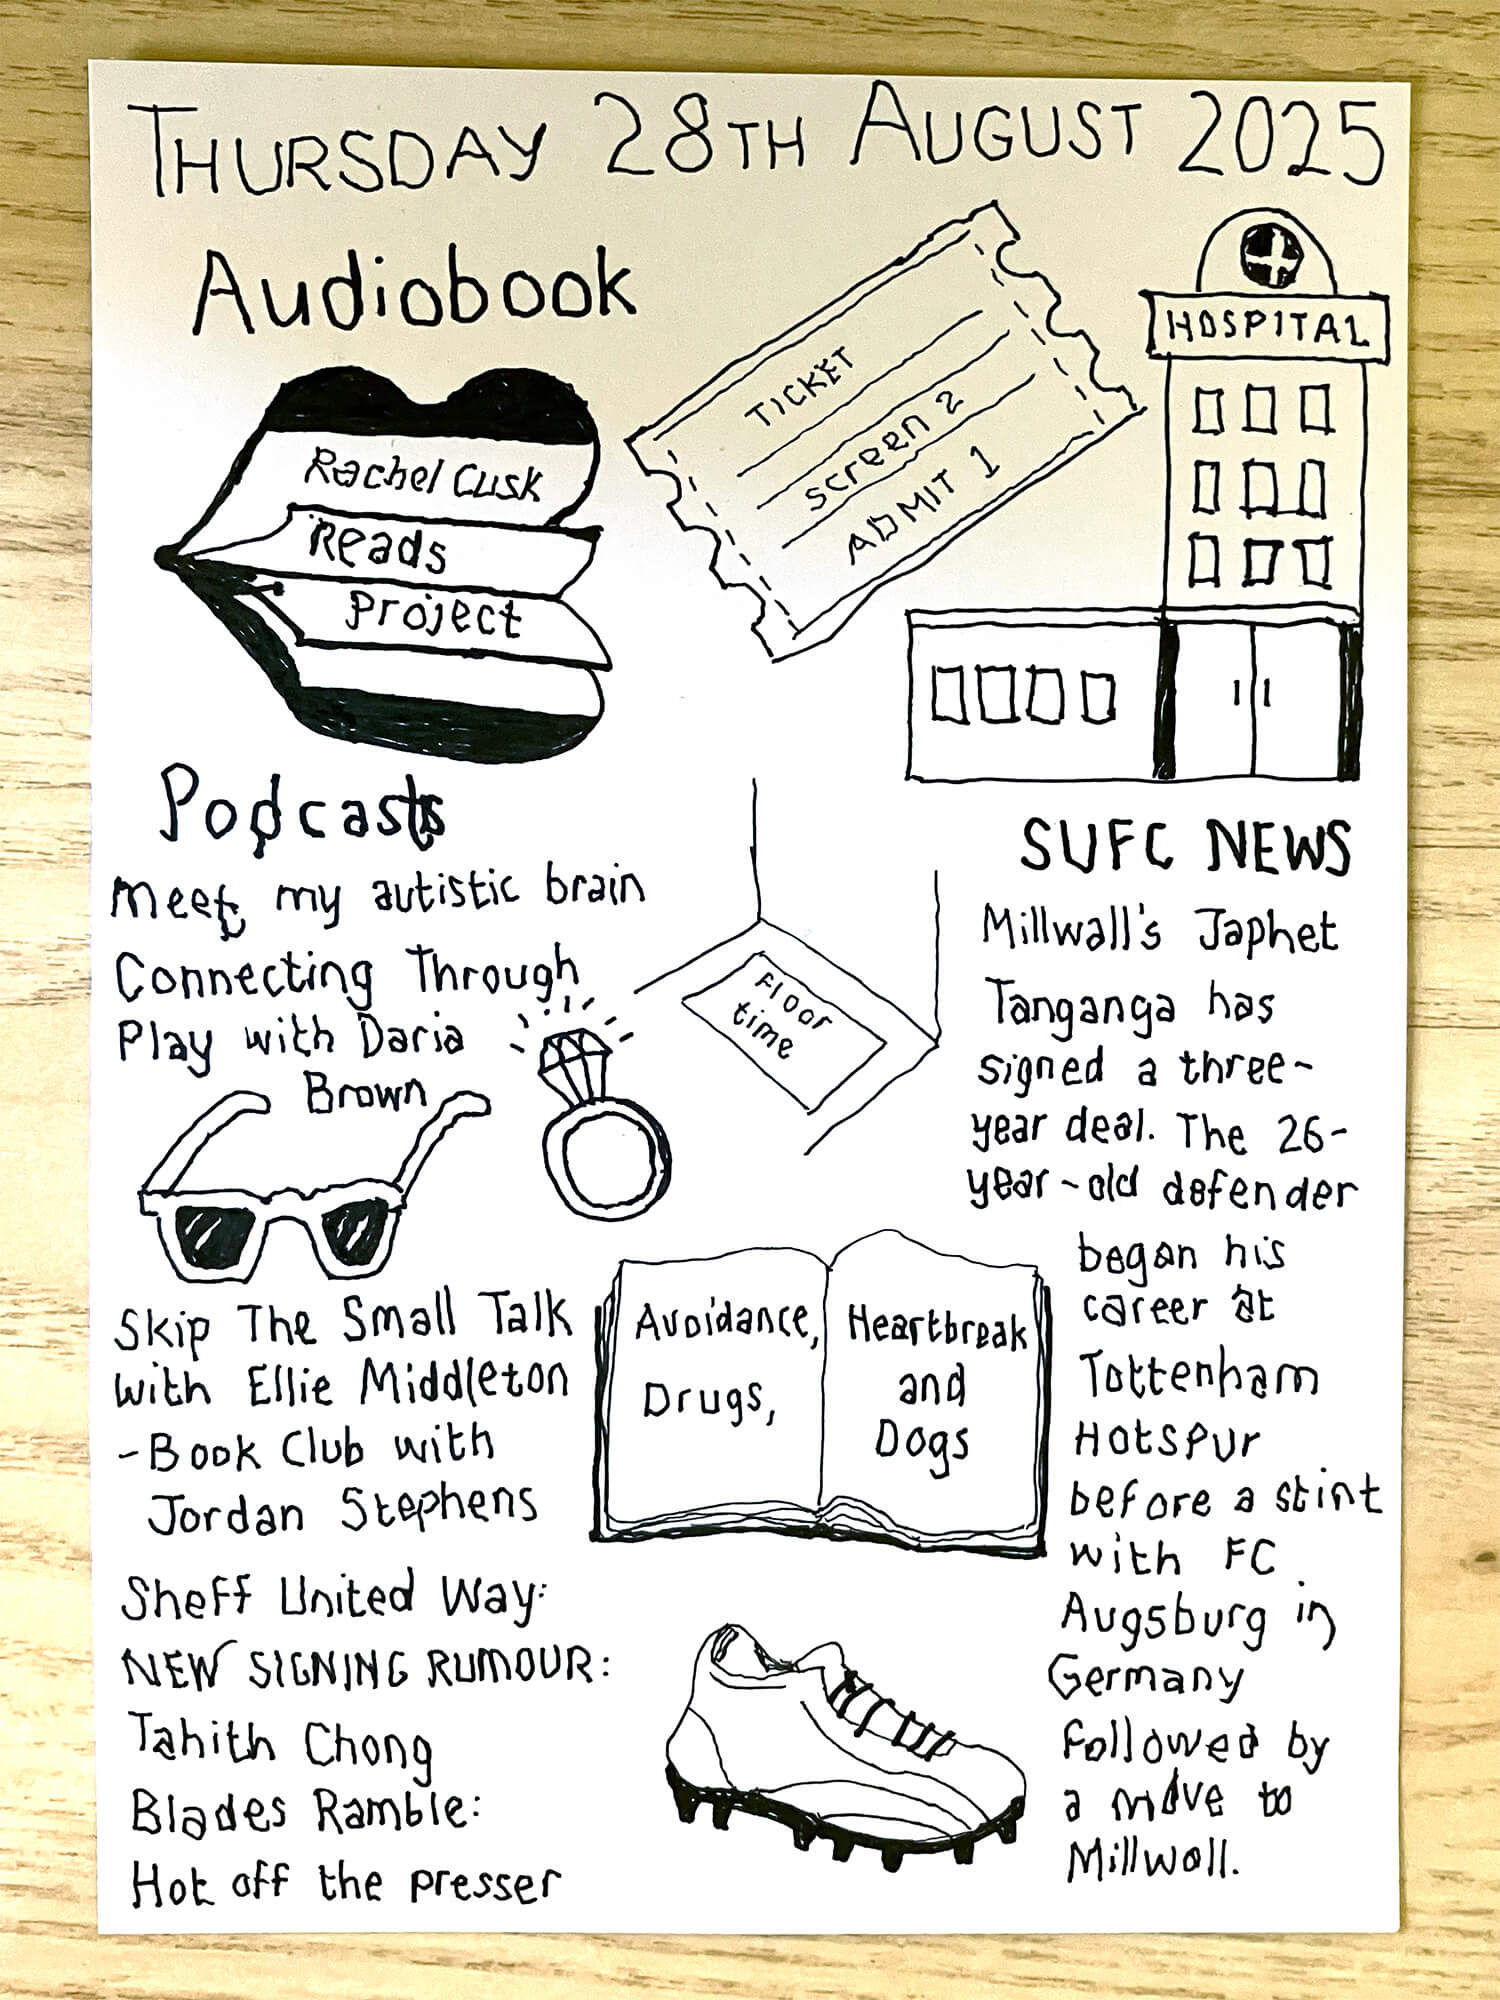 THURSDAY 28TH AUGUST 2025
Audiobook
Rachel Cusk
Reads
Project
TICKET
screen 2
ADMIT 1
HOSPITAL
Podcasts
Meet my autistic brain
Connecting Through
Play with Daria
Brown
Floor
time
Skip The Small Talk
with Ellie Middleton
-Book Club with
Jordan Stephens
Avoidance,
Drugs,
Heartbreak
and
Dogs
Sheff United Way:
NEW SIGNING RUMOUR:
Tahith Chong
Blades Ramble:
Hot off the presser
SUFC NEWS
Millwall's Japhet
Tanganga has
signed a three-
year deal. The 26-
year-old defender
began his
career at
Tottenham
Hotspur
before a stint
with FC
Augsburg in
Germany
followed by
a move to
Millwall.